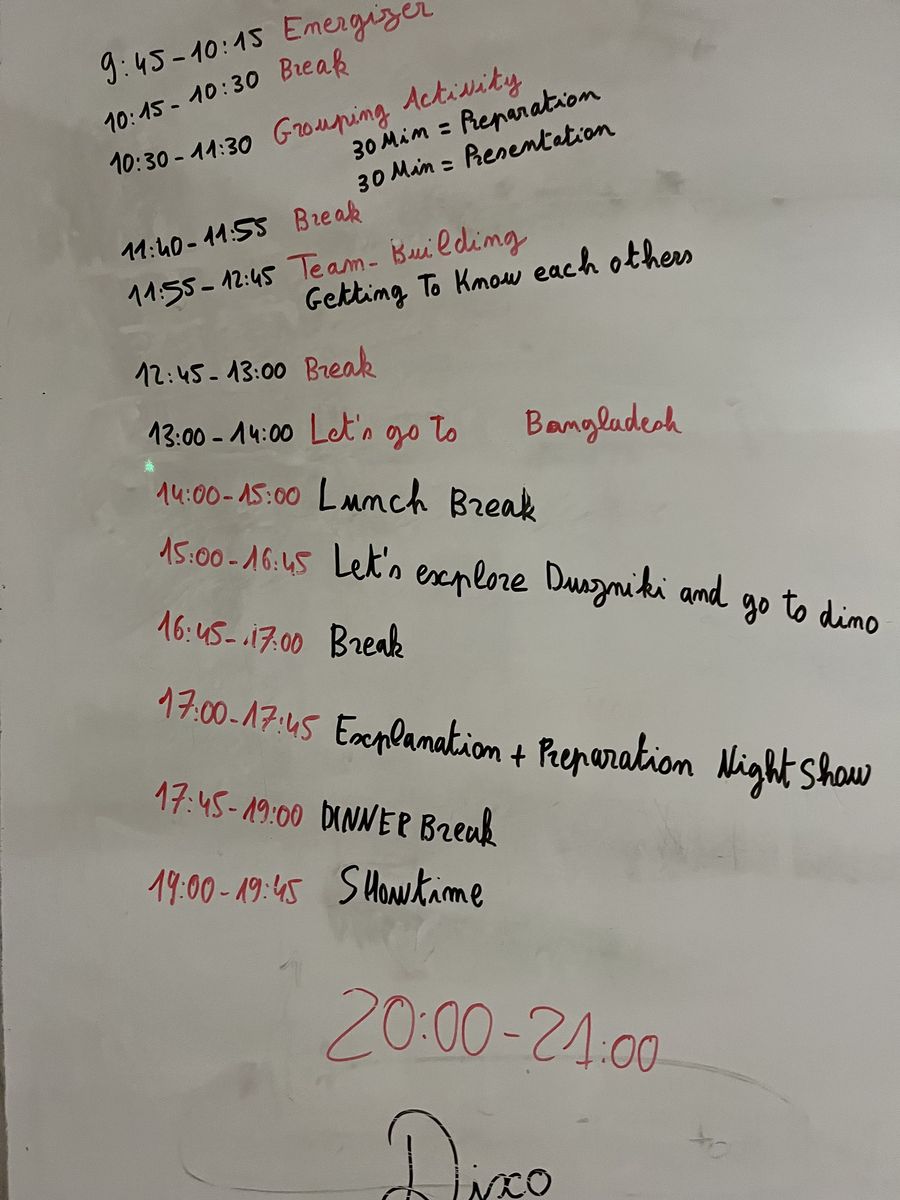 9:45-10:15 Energizer
10:15-10:30 Break
10:30-11:30 Grouping Activity
30 Min = Preparation
30 Min = Presentation
11:40-11:55 Break
11:55-12:45 Team-Building
Getting To Know each others
12:45-13:00 Break
13:00-14:00 Let's go to Bangladesh
14:00-15:00 Lunch Break
15:00-16:45 Let's explore Duszniki and go to dino
16:45-17:00 Break
17:00-17:45 Explanation + Preparation Night Show
17:45-19:00 DINNER Break
19:00-19:45 SHowtime
20:00-21:00
Dixo